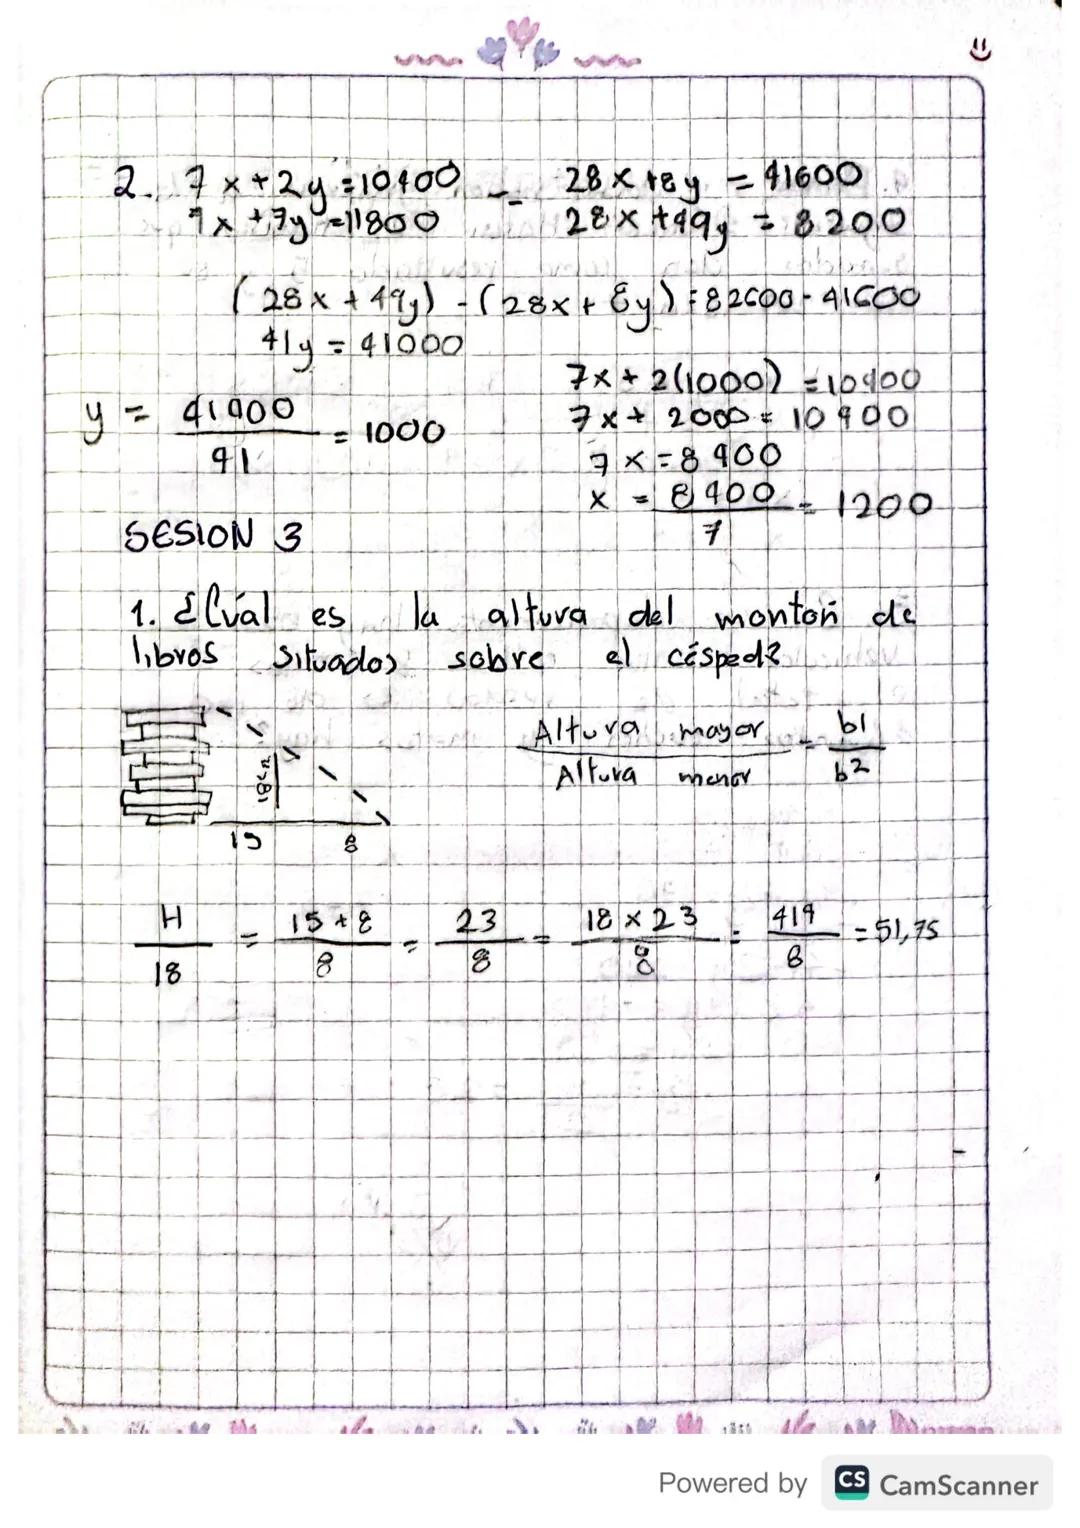 2. 7x+2y=10400 -- 28x+8y = 41600
7x+7y=11800 28x+49y = 8200
(28x+49y)-(28x+8y)=82600-41600
41y = 41000
7x+2(1000) =10400
y = 41000/41 = 1000
7x+ 2000= 10900
7x=8400
x = 8400/7 = 1200
SESION 3
1. ¿Cuál es la altura del montón de
libros situados sobre el césped?
Altura mayor / Altura menor = b1/b2
15 8
H/18 = 15+8/8 = 23/8 = 18×23/8 = 414/8 = 51,75
Powered by CS CamScanner